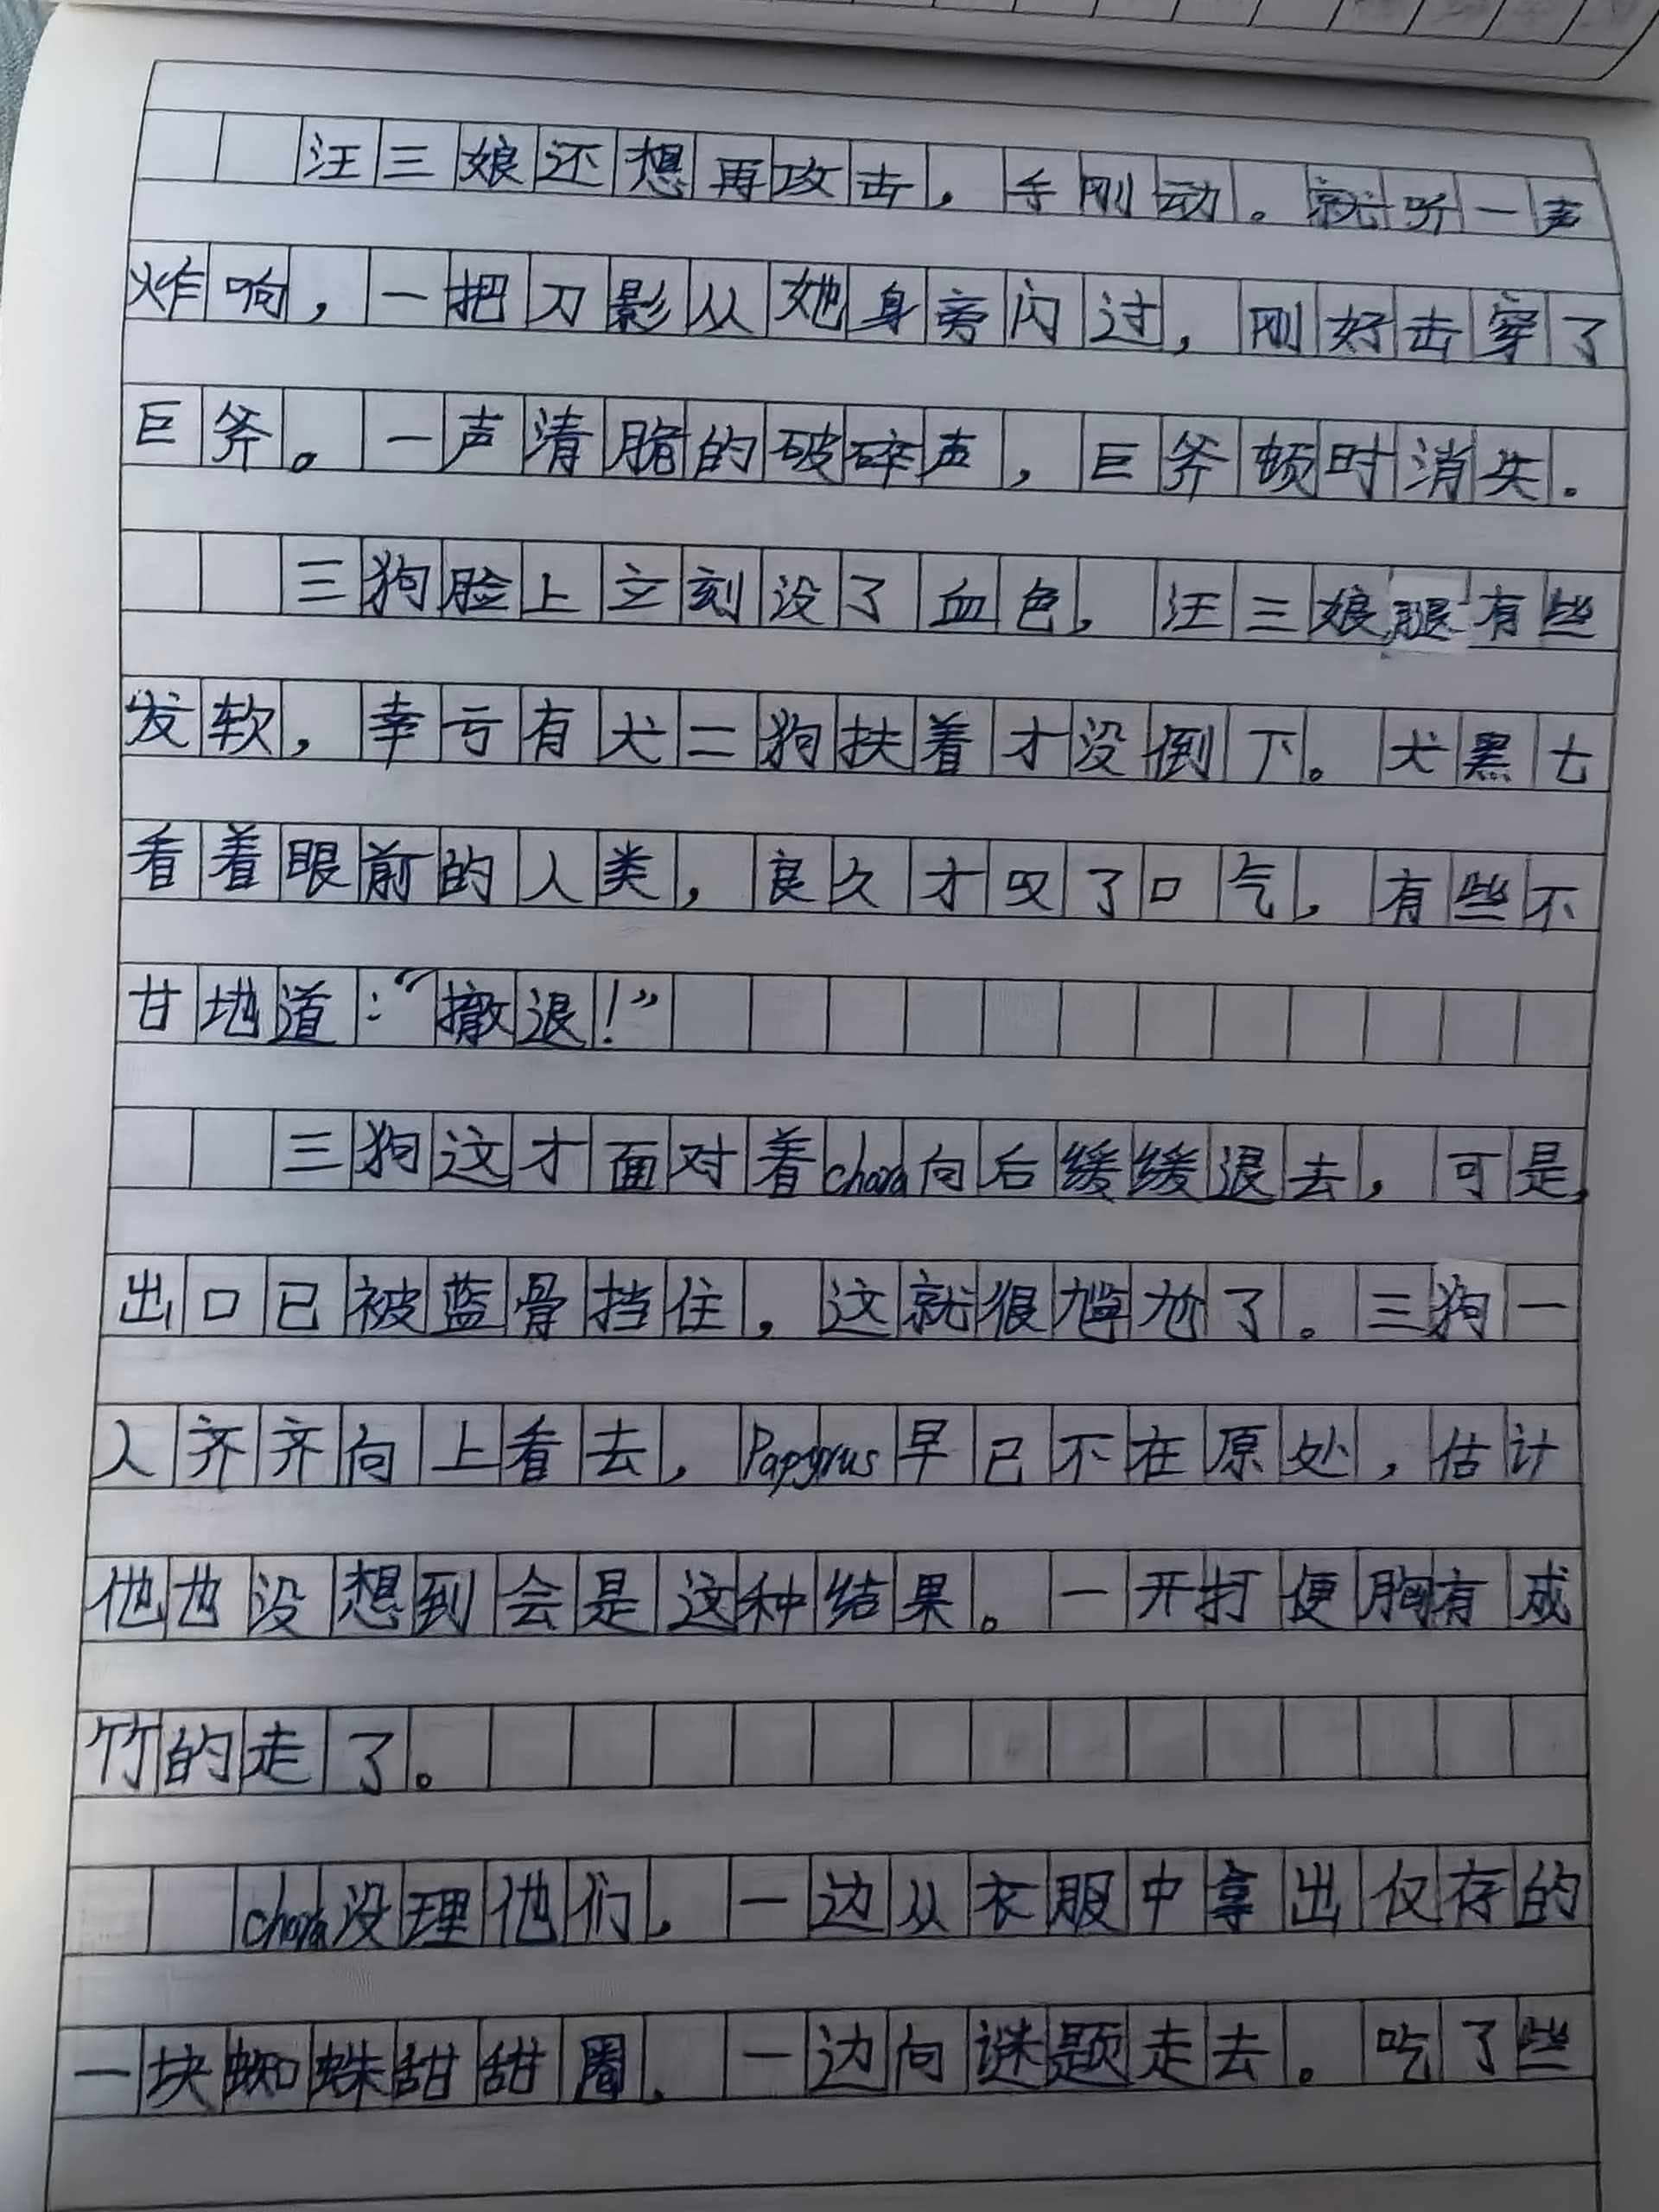 汪三娘还想再攻击，手刚动。就听一声
炸响，一把刀影从她身旁闪过，刚好击穿了
巨斧。一声清脆的破碎声，巨斧顿时消失。
三狗脸上立刻没了血色，汪三娘腿有些
发软，幸亏有犬二狗扶着才没倒下。犬黑七
看着眼前的人类，良久才叹了口气，有些不
甘地道：“撤退！”
三狗这才面对着chara向后缓缓退去，可是，
出口已被蓝骨挡住，这就很尴尬了。三狗一
人齐齐向上看去，Papyrus早已不在原处，估计
他也没想到会是这种结果。一开打便胸有成
竹的走了。
chara没理他们，一边从衣服中拿出仅存的
一块蜘蛛甜甜圈，一边向谜题走去。吃了些